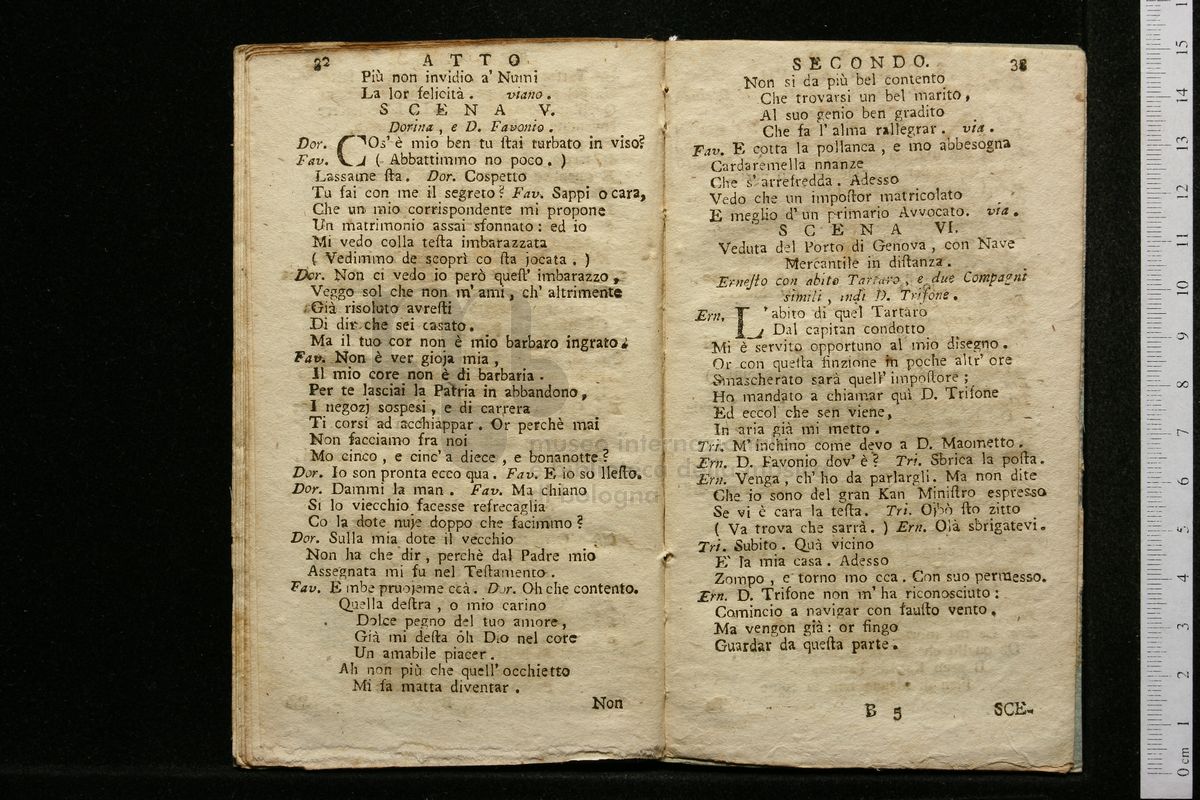 32 ATTO
Più non invidio a' Numi
La lor felicità. viano.
SCENA V.
Dorina, e D. Favonio.
Dor. COs' è mio ben tu ſtai turbato in viso?
Fav. ( Abbattimmo no poco. )
Lassame ſta. Dor. Cospetto
Tu fai con me il segreto? Fav. Sappi o cara,
Che un mio corrispondente mi propone
Un matrimonio assai sfonnato: ed io
Mi vedo colla teſta imbarazzata
( Vedimmo de scoprì co ſta jocata. )
Dor. Non ci vedo io però queſt' imbarazzo,
Veggo sol che non m' ami, ch' altrimente
Già risoluto avreſti
Di dir che sei casato.
Ma il tuo cor non è mio barbaro ingrato.
Fav. Non è ver gioja mia,
Il mio core non è di barbaria.
Per te lasciai la Patria in abbandono,
I negozj sospesi, e di carrera
Ti corsi ad acchiappar. Or perchè mai
Non facciamo fra noi
Mo cinco, e cinc' a diece, e bonanotte?
Dor. Io son pronta ecco qua. Fav. E io so lleſto.
Dor. Dammi la man. Fav. Ma chiano
Si lo viecchio facesse refrecaglia
Co la dote nuje doppo che facimmo?
Dor. Sulla mia dote il vecchio
Non ha che dir, perchè dal Padre mio
Assegnata mi fu nel Teſtamento.
Fav. E mbe pruojeme ccà. Dor. Oh che contento.
Quella deſtra, o mio carino
Dolce pegno del tuo amore,
Già mi deſta oh Dio nel core
Un amabile piacer.
Ah non più che quell' occhietto
Mi fa matta diventar.
Non
SECONDO. 33
Non si da più bel contento
Che trovarsi un bel marito,
Al suo genio ben gradito
Che fa l' alma rallegrar. via.
Fav. E cotta la pollanca, e mo abbesogna
Cardaremella nnanze
Che s' arrefredda. Adesso
Vedo che un impoſtor matricolato
E meglio d' un primario Avvocato. via.
SCENA VI.
Veduta del Porto di Genova, con Nave
Mercantile in diſtanza.
Erneſto con abito Tartaro, e due Compagni
simili, indi D. Trifone.
Ern. L'abito di quel Tartaro
Dal capitan condotto
Mi è servito opportuno al mio disegno.
Or con queſta finzione in poche altr' ore
Smascherato sarà quell' impoſtore;
Ho mandato a chiamar quì D. Trifone
Ed eccol che sen viene,
In aria già mi metto.
Tri. M' inchino come devo a D. Maometto.
Ern. D. Favonio dov' è? Tri. Sbrica la poſta.
Ern. Venga, ch' ho da parlargli. Ma non dite
Che io sono del gran Kan Miniſtro espresso
Se vi è cara la teſta. Tri. Ojbò ſto zitto
( Va trova che sarrà. ) Ern. Olà sbrigatevi.
Tri. Subito. Quà vicino
E' la mia casa. Adesso
Zompo, e torno mo cca. Con suo permesso.
Ern. D. Trifone non m' ha riconosciuto:
Comincio a navigar con fauſto vento,
Ma vengon già: or fingo
Guardar da queſta parte.
B 5 SCE-
museo internazionale
e biblioteca della musica
di bologna
0 cm 1 2 3 4 5 6 7 8 9 10 11 12 13 14 15